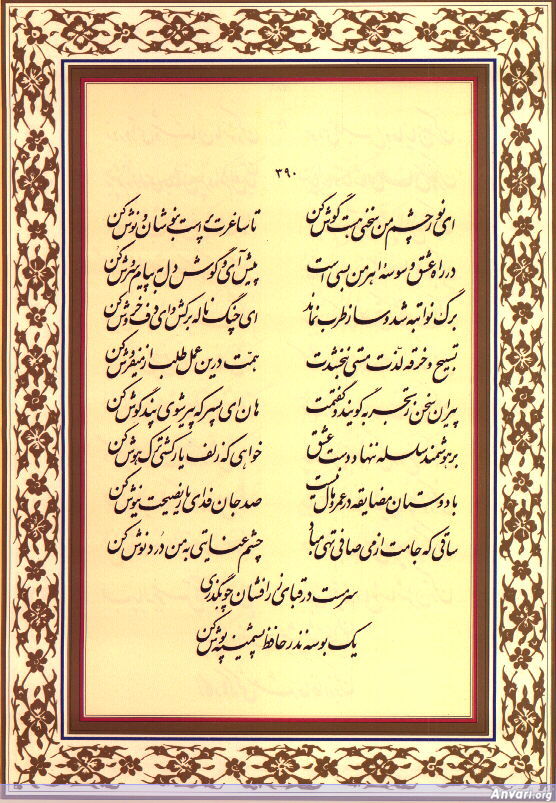 ۳۹۰
ای نور چشم من سخنی هست گوش کن تا ساغرت پر است بنوشان و نوش کن
در راه عشق وسوسه اهرمن بسی است پیش آی و گوش دل به پیام سروش کن
برگ نوا تبه شد و ساز طرب نماند ای چنگ ناله برکش و ای دف خروش کن
تسبیح و خرقه لذّت مستی نبخشدت همت درین عمل طلب از میفروش کن
پیران سخن ز تجربه گویند و گفتمت هان ای پسر که پیر شوی پند گوش کن
بر هوشمند سلسله ننهاد دست عشق خواهی که زلف یار کشی ترک هوش کن
با دوستان مضایقه در عمر و مال نیست صد جان فدای یار نصیحت نیوش کن
ساقی که جامت از می صافی تهی مباد چشم عنایتی به من درد نوش کن
سرمست در قبای زرافشان چو بگذری
یک بوسه نذر حافظ پشمینه پوش کن
Anvari.org